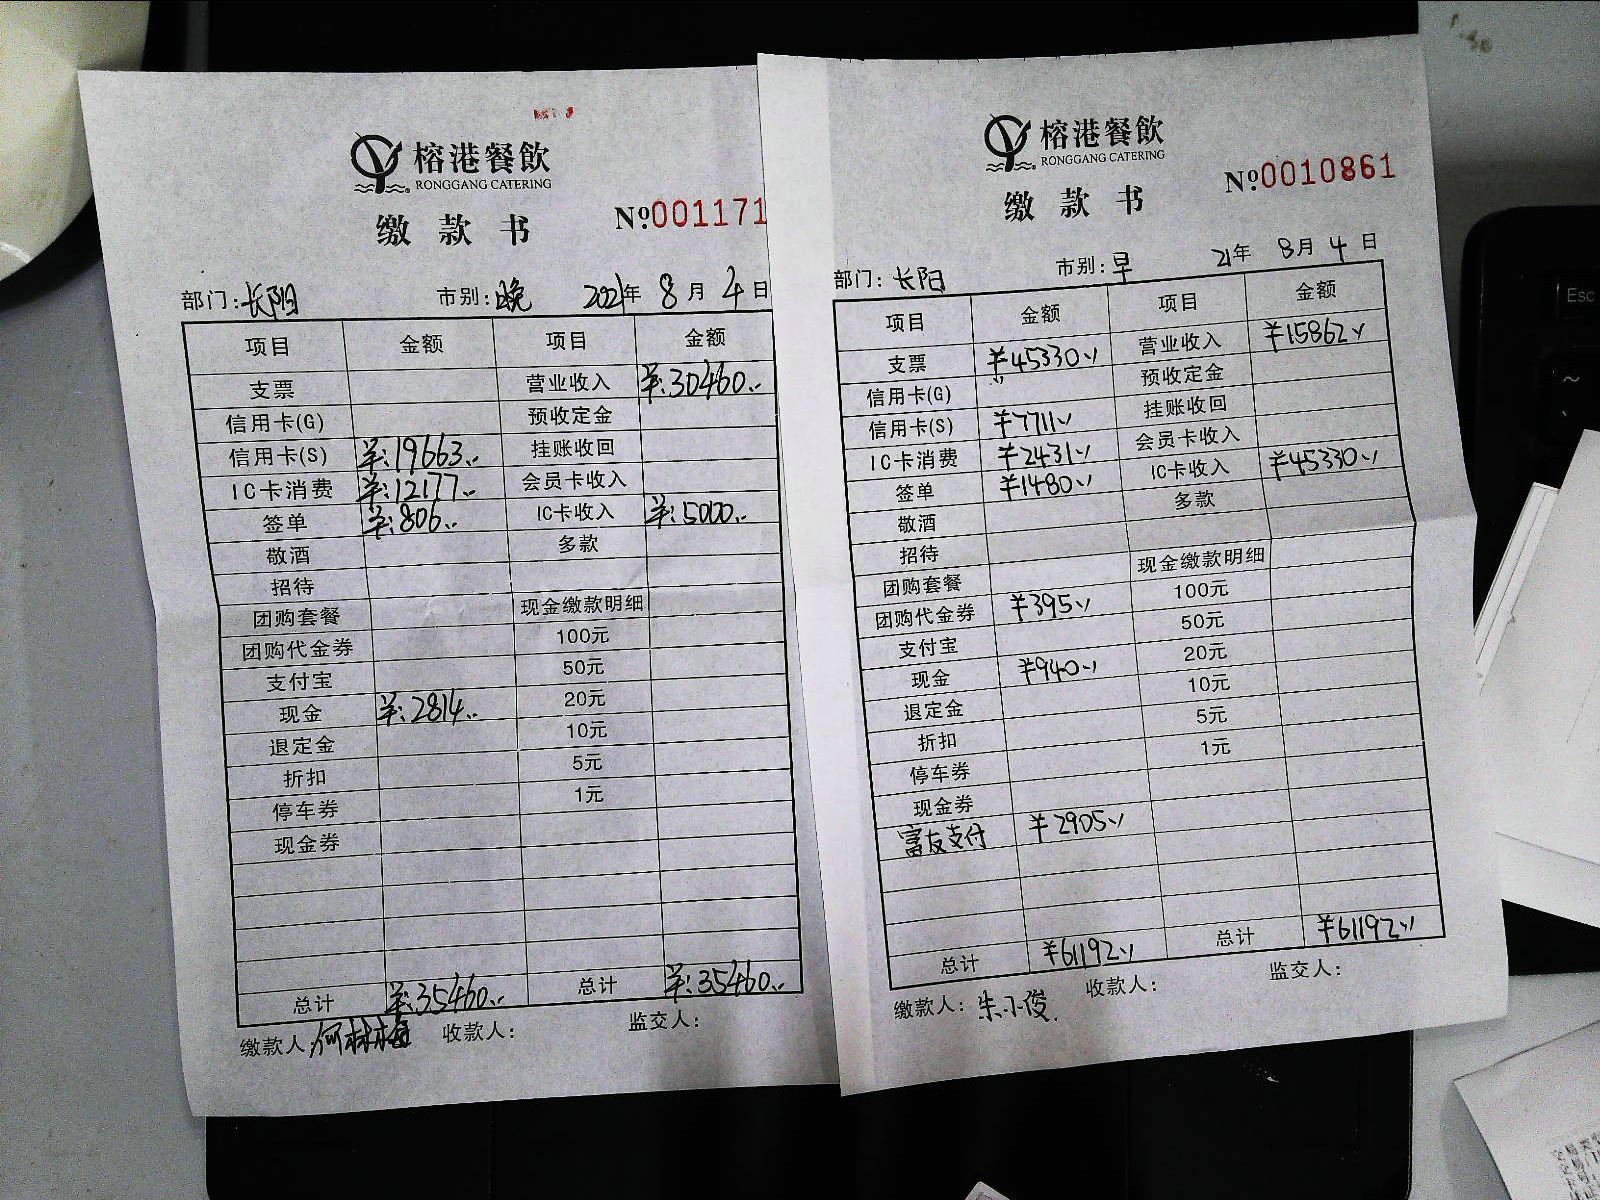 榕港餐飲
RONGGANG CATERING
缴款书
№001171
部门:长阳 市别:晚 2021年 8月 4日
项目 金额 项目 金额
支票 营业收入 ¥:30460..
信用卡(G) 预收定金
信用卡(S) ¥:19663.. 挂账收回
IC卡消费 ¥:12177.. 会员卡收入
签单 ¥:806.. IC卡收入 ¥:5000..
敬酒 多款
招待
团购套餐 现金缴款明细
团购代金券 100元
支付宝 50元
现金 ¥:2814.. 20元
退定金 10元
折扣 5元
停车券 1元
现金券
总计 ¥:35460.. 总计 ¥:35460..
缴款人:何林梅 收款人: 监交人:
榕港餐飲
RONGGANG CATERING
缴款书
№0010861
部门:长阳 市别:早 21年 8月 4日
项目 金额 项目 金额
支票 ¥45330.. 营业收入 ¥15862..
信用卡(G) 预收定金
信用卡(S) ¥7711.. 挂账收回
IC卡消费 ¥2431.. 会员卡收入
签单 ¥1480.. IC卡收入 ¥45330..
敬酒 多款
招待
团购套餐 现金缴款明细
团购代金券 ¥395.. 100元
支付宝 50元
现金 ¥940.. 20元
退定金 10元
折扣 5元
停车券 1元
现金券
富友支付 ¥2905..
总计 ¥61192.. 总计 ¥61192..
缴款人:朱小俊. 收款人: 监交人:
Esc